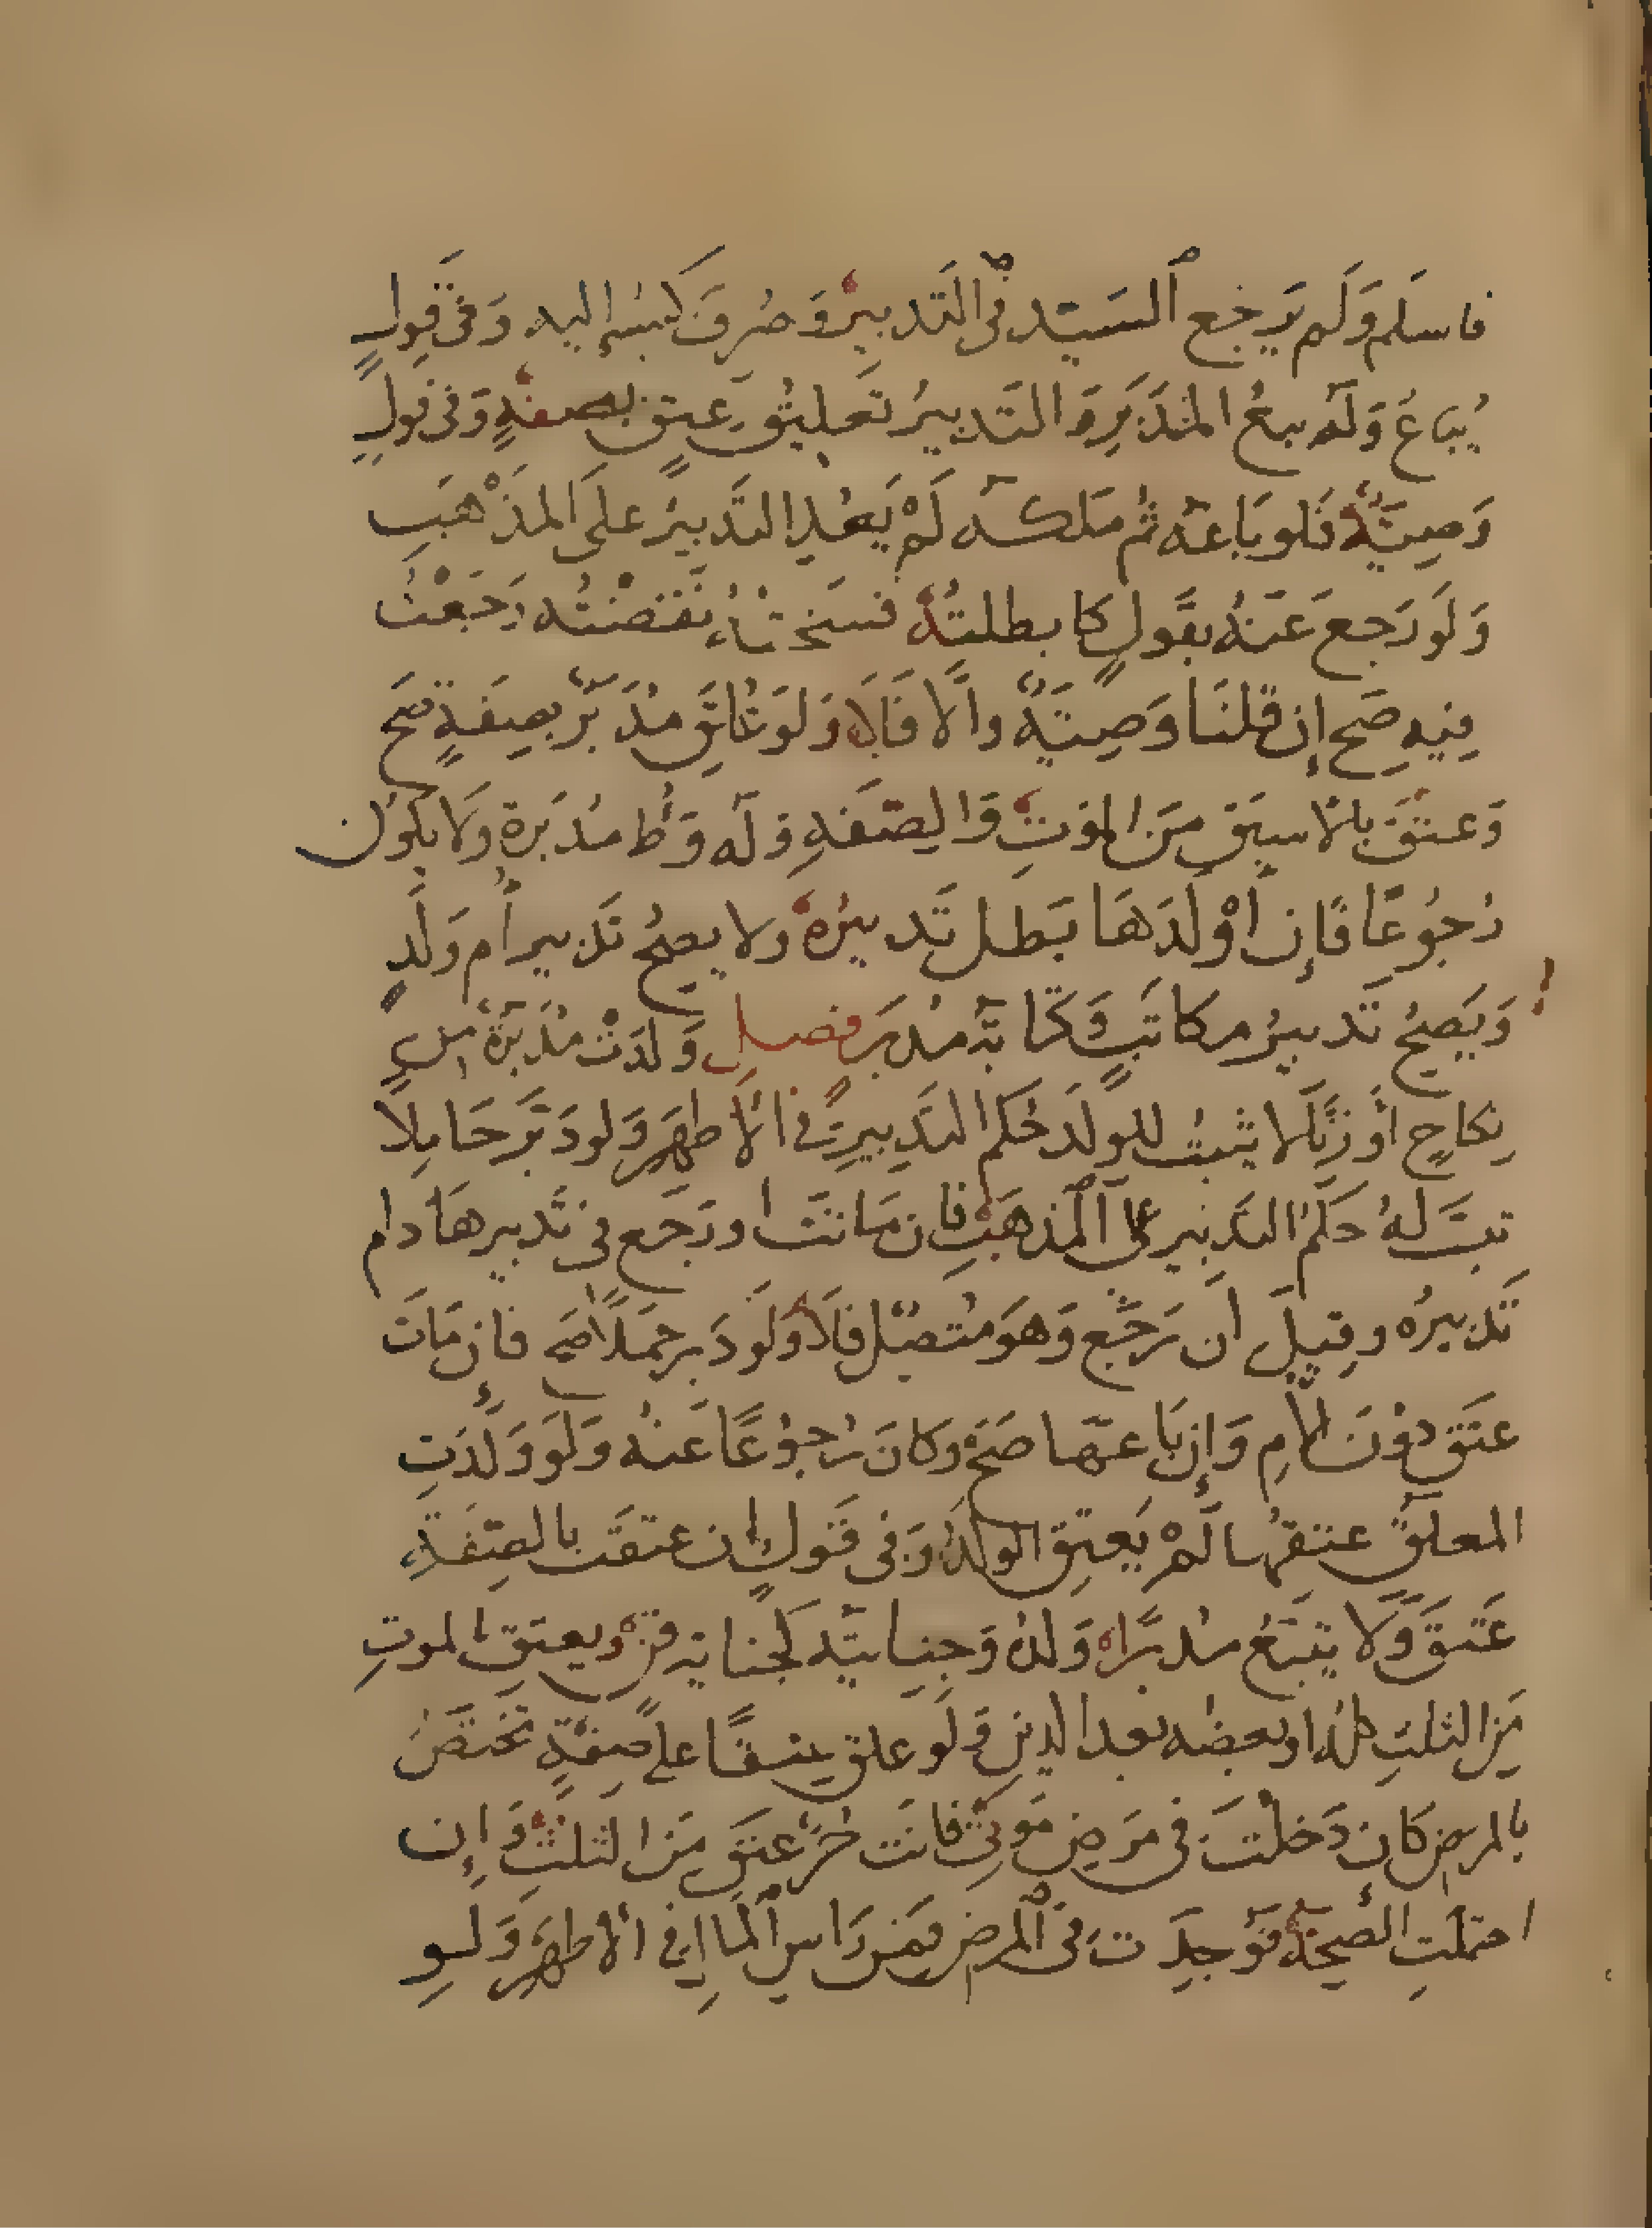 فاسلم وَلَم يَرجع السَيّد في التَدبيرِ وَصُرِفَ كَسبه إليه وَفي قولٍ
يُباعُ وَله بيعُ المُدَبَّرِ وَ التَدبيرُ تعليقُ عِتقٍ بصفةٍ وَفي قولٍ
وَصِيَّةٌ فلو باعه ثم ملكه لَمْ يَعُدِ التَدبيرُ علَى المَذْهَبِ
وَلَو رَجع عَنهُ بقَولٍ كابطلتُهُ فسَختُهُ نقَضْتُه رَجَعْتُ
فيهِ صَح إن قُلنَا وَصِيَّةٌ وإلَّا فَلَا وَلَو عُلِّقَ مُدَبَّرٌ بصِفَةٍ صَح
وَعتقَ بالاسبَقِ مِنَ الموتِ وَالصّفَةِ وَله وَطءُ مُدَبَرة ولا يكون
رُجُوعًا فَإن اوْلَدَهَا بَطَل تَدبيرُهُ ولا يصحُ تدبير أُم وَلَدٍ
وَيَصحُ تَدبيرُ مكاتَبٍ وَكتابةُ مُدبَرٍ فصل وَلدَتْ مُدَبَّرةٌ من
نِكاحٍ أو زِنًا لا يثبتُ للولَد حُكم التَدبيرِ في الأظهَرِ وَلو دَبَّر حَامِلًا
ثبتَ لَهُ حُكمُ التَدبيرِ على المَذهَبِ فان مَاتَت او رَجَع في تَدبيرهَا دام
تَدبيرُه وقيلَ ان رَجَع وَهوَ مُتصلٌ فلَا وَلَو دَبر حَملًا صَح فإن مَاتَ
عتَقَ دُونَ الأمِ وَإن بَاعهَا صَحَّ وَكانَ رُجوُعًا عَنهُ وَلَو وَلَدَتِ
المعلقُ عتقهُا لَمْ يَعتِق الولَدُ وَفي قَولٍ إن عتقَت بالصِفَةِ
عَتقَ وَلَا يتبَعُ مُدبَّرًا وَلدُهُ وَجِنايَتُه كَجناية قنٍّ ويعتقُ بالموتِ
مِنَ الثلثِ كلُهُ او بعضُه بعد الدينِ وَلَو علق عِتقًا على صِفةٍ تَختَصُ
بالمرض كَان دَخلْتَ في مرَضِ مَوتِي فانت حُرٌ عتقَ مِنَ الثلثِ وَإن
احتمَلَتِ الصِّحةَ فوُجِدَت في المرض فمن رَاسِ المَال في الأظهَرِ وَلو